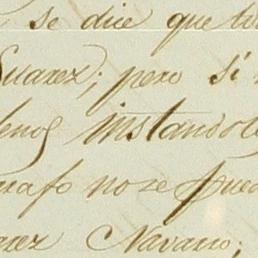 se dice que tu
Suarez; pero si
lenos instandole
rafo no se pued
arez Navarro;